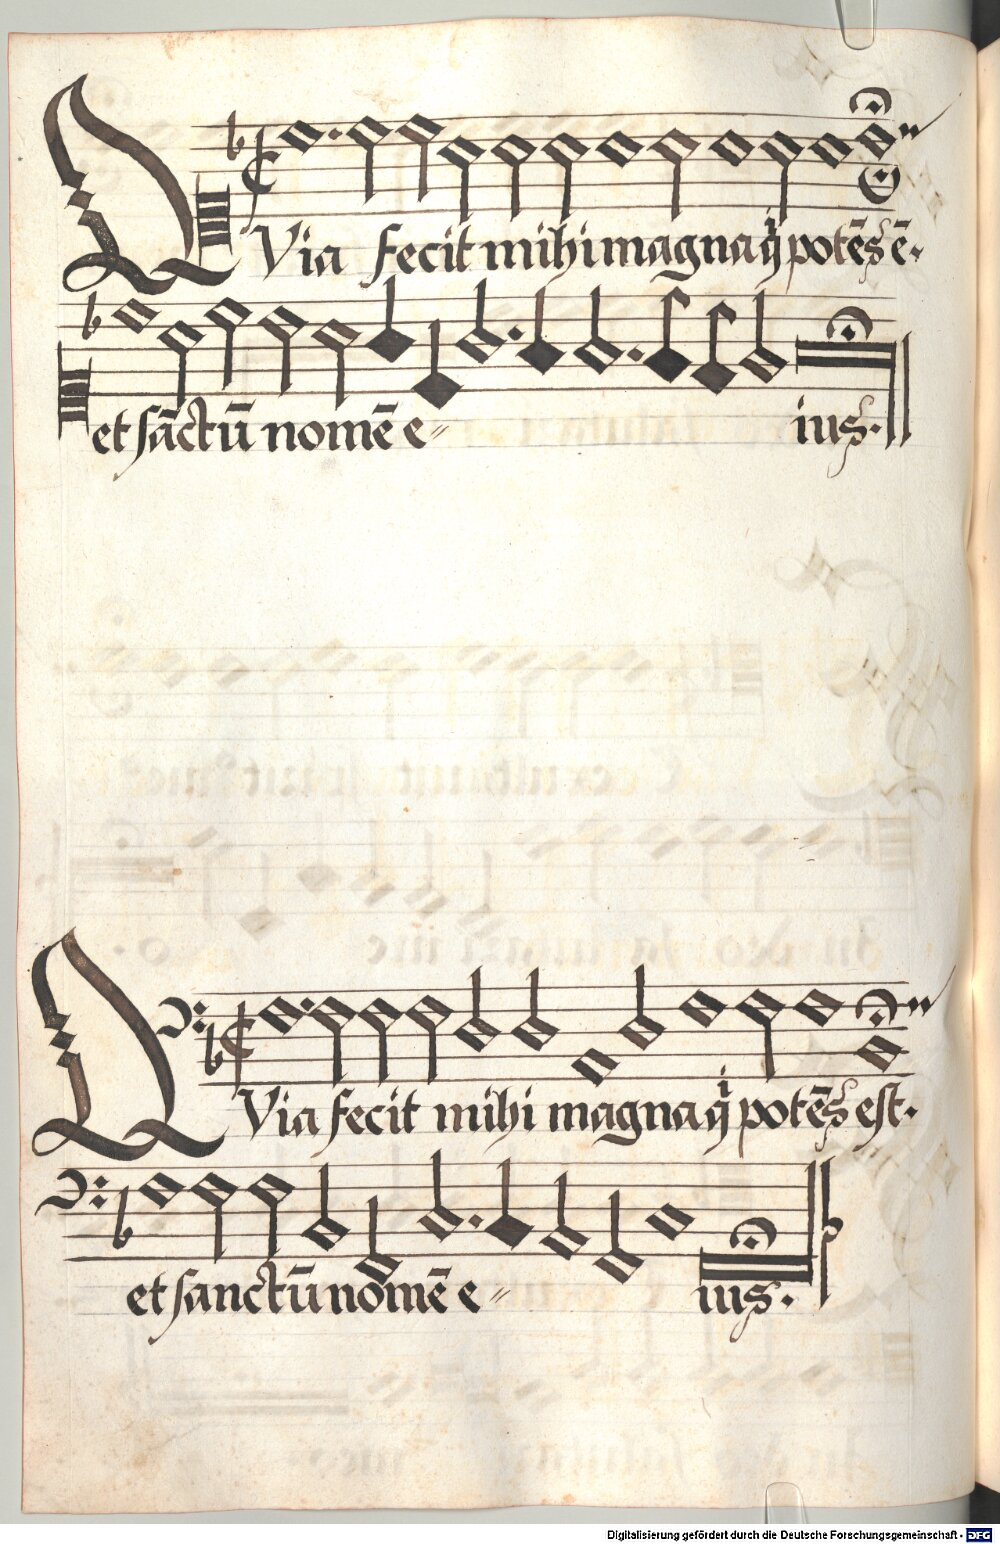 QVia fecit mihi magna q̄ potēs ē.
et sāctū nomē e〃 ius.
QVia fecit mihi magna q̄ potēs est.
et sanctū nomē e〃 ius.
Digitalisierung gefördert durch die Deutsche Forschungsgemeinschaft - DFG